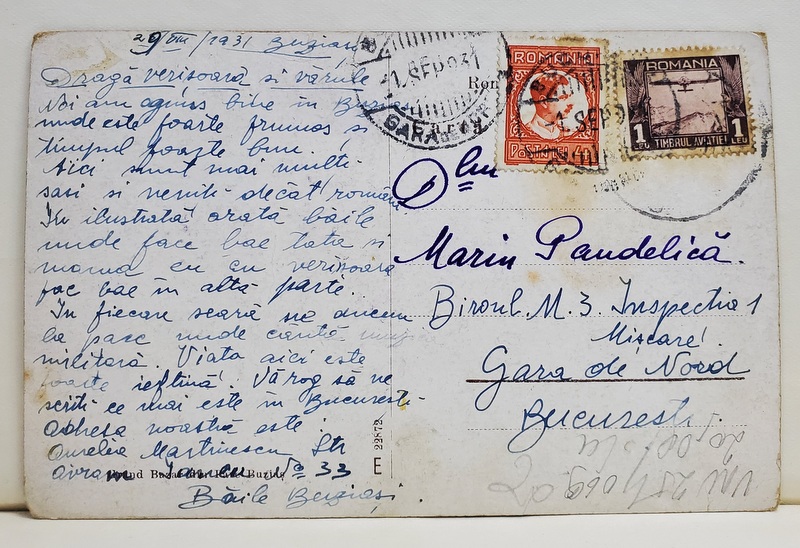 29 VIII / 1931 Buziaș
Dragă verișoară si vărule
Noi am agiuns bine in Buziaș
unde este foarte frumos si
timpul foarte bun!
Aici sunt mai multi
sasi si nemti decât români
In ilustrată arată baile
unde face bae tata si
mama eu cu verisoara
fac bae in altă parte.
In fiecare seară ne ducem
la parc unde cântă muzica
militară. Viata aici este
foarte ieftină! Vă rog să ne
scriti ce mai este in Bucuresti
adresa noastră este:
Aurelia Martinescu Str
Avram Iancu No 33
Băile Buziași.
E 22872
SEP 931
GARA
ROMANIA
ROMANIA
1 LEU TIMBRUL AVIAȚIEI 1 LEU
1 SEP 9
Dlui
Marin Pandelică.
Biroul M. 3. Inspectia 1
Mișcare!
Gara de Nord
București.